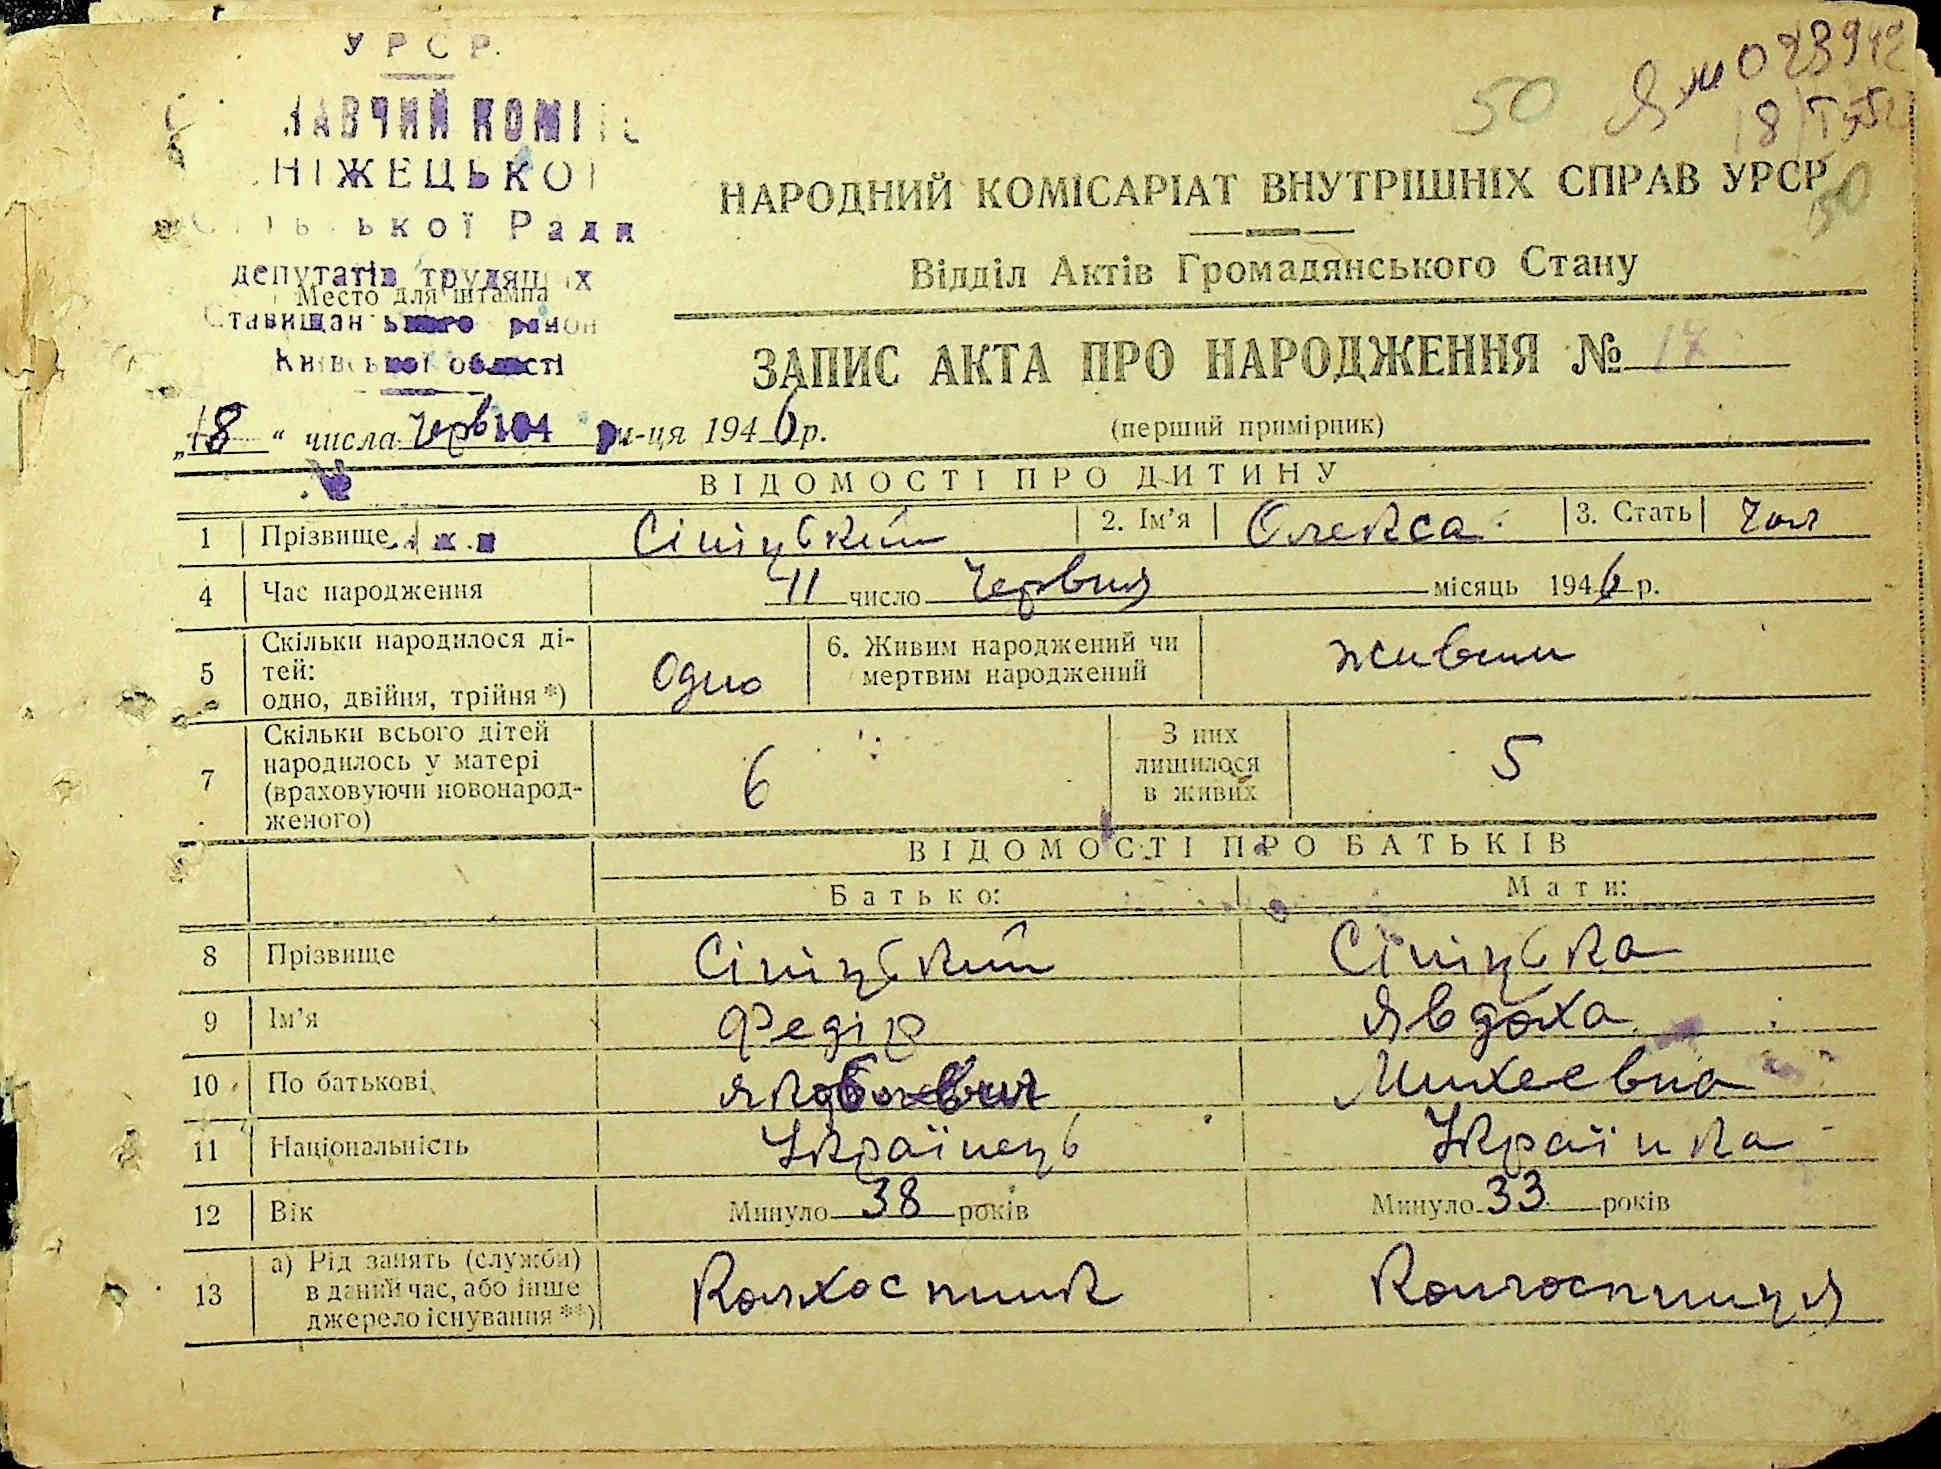 УРСР.
НАВЧИЙ КОМІ
НІЖЕЦЬКОЇ
ької Ради
депутатів трудящих
Место для штампа
Ставищанського район
Київської області
50
ЯМ 023942
18/I 52
50
НАРОДНИЙ КОМІСАРІАТ ВНУТРІШНІХ СПРАВ УРСР
Відділ Актів Громадянського Стану
ЗАПИС АКТА ПРО НАРОДЖЕННЯ № 17
(перший примірник)
„18 “ числа червня м-ця 1946 р.
ВІДОМОСТІ ПРО ДИТИНУ
1 Прізвище Сініцький 2. Ім’я Олекса 3. Стать Чол
4 Час народження 11 число Червня місяць 1946 р.
5 Скільки народилося ді-
тей:
одно, двійня, трійня *) Одно 6. Живим народжений чи
мертвим народжений живим
7 Скільки всього дітей
народилось у матері
(враховуючи новонарод-
женого) 6 З них
лишилося
в живих 5
ВІДОМОСТІ ПРО БАТЬКІВ
Батько: Мати:
8 Прізвище Сініцький Сініцька
9 Ім’я Федір Явдоха
10 По батькові Якобович Михеевна
11 Національність Українець Українка
12 Вік Минуло 38 років Минуло 33 років
13 а) Рід занять (служби)
в даний час, або інше
джерело існування **) Колхосник Колгосниця